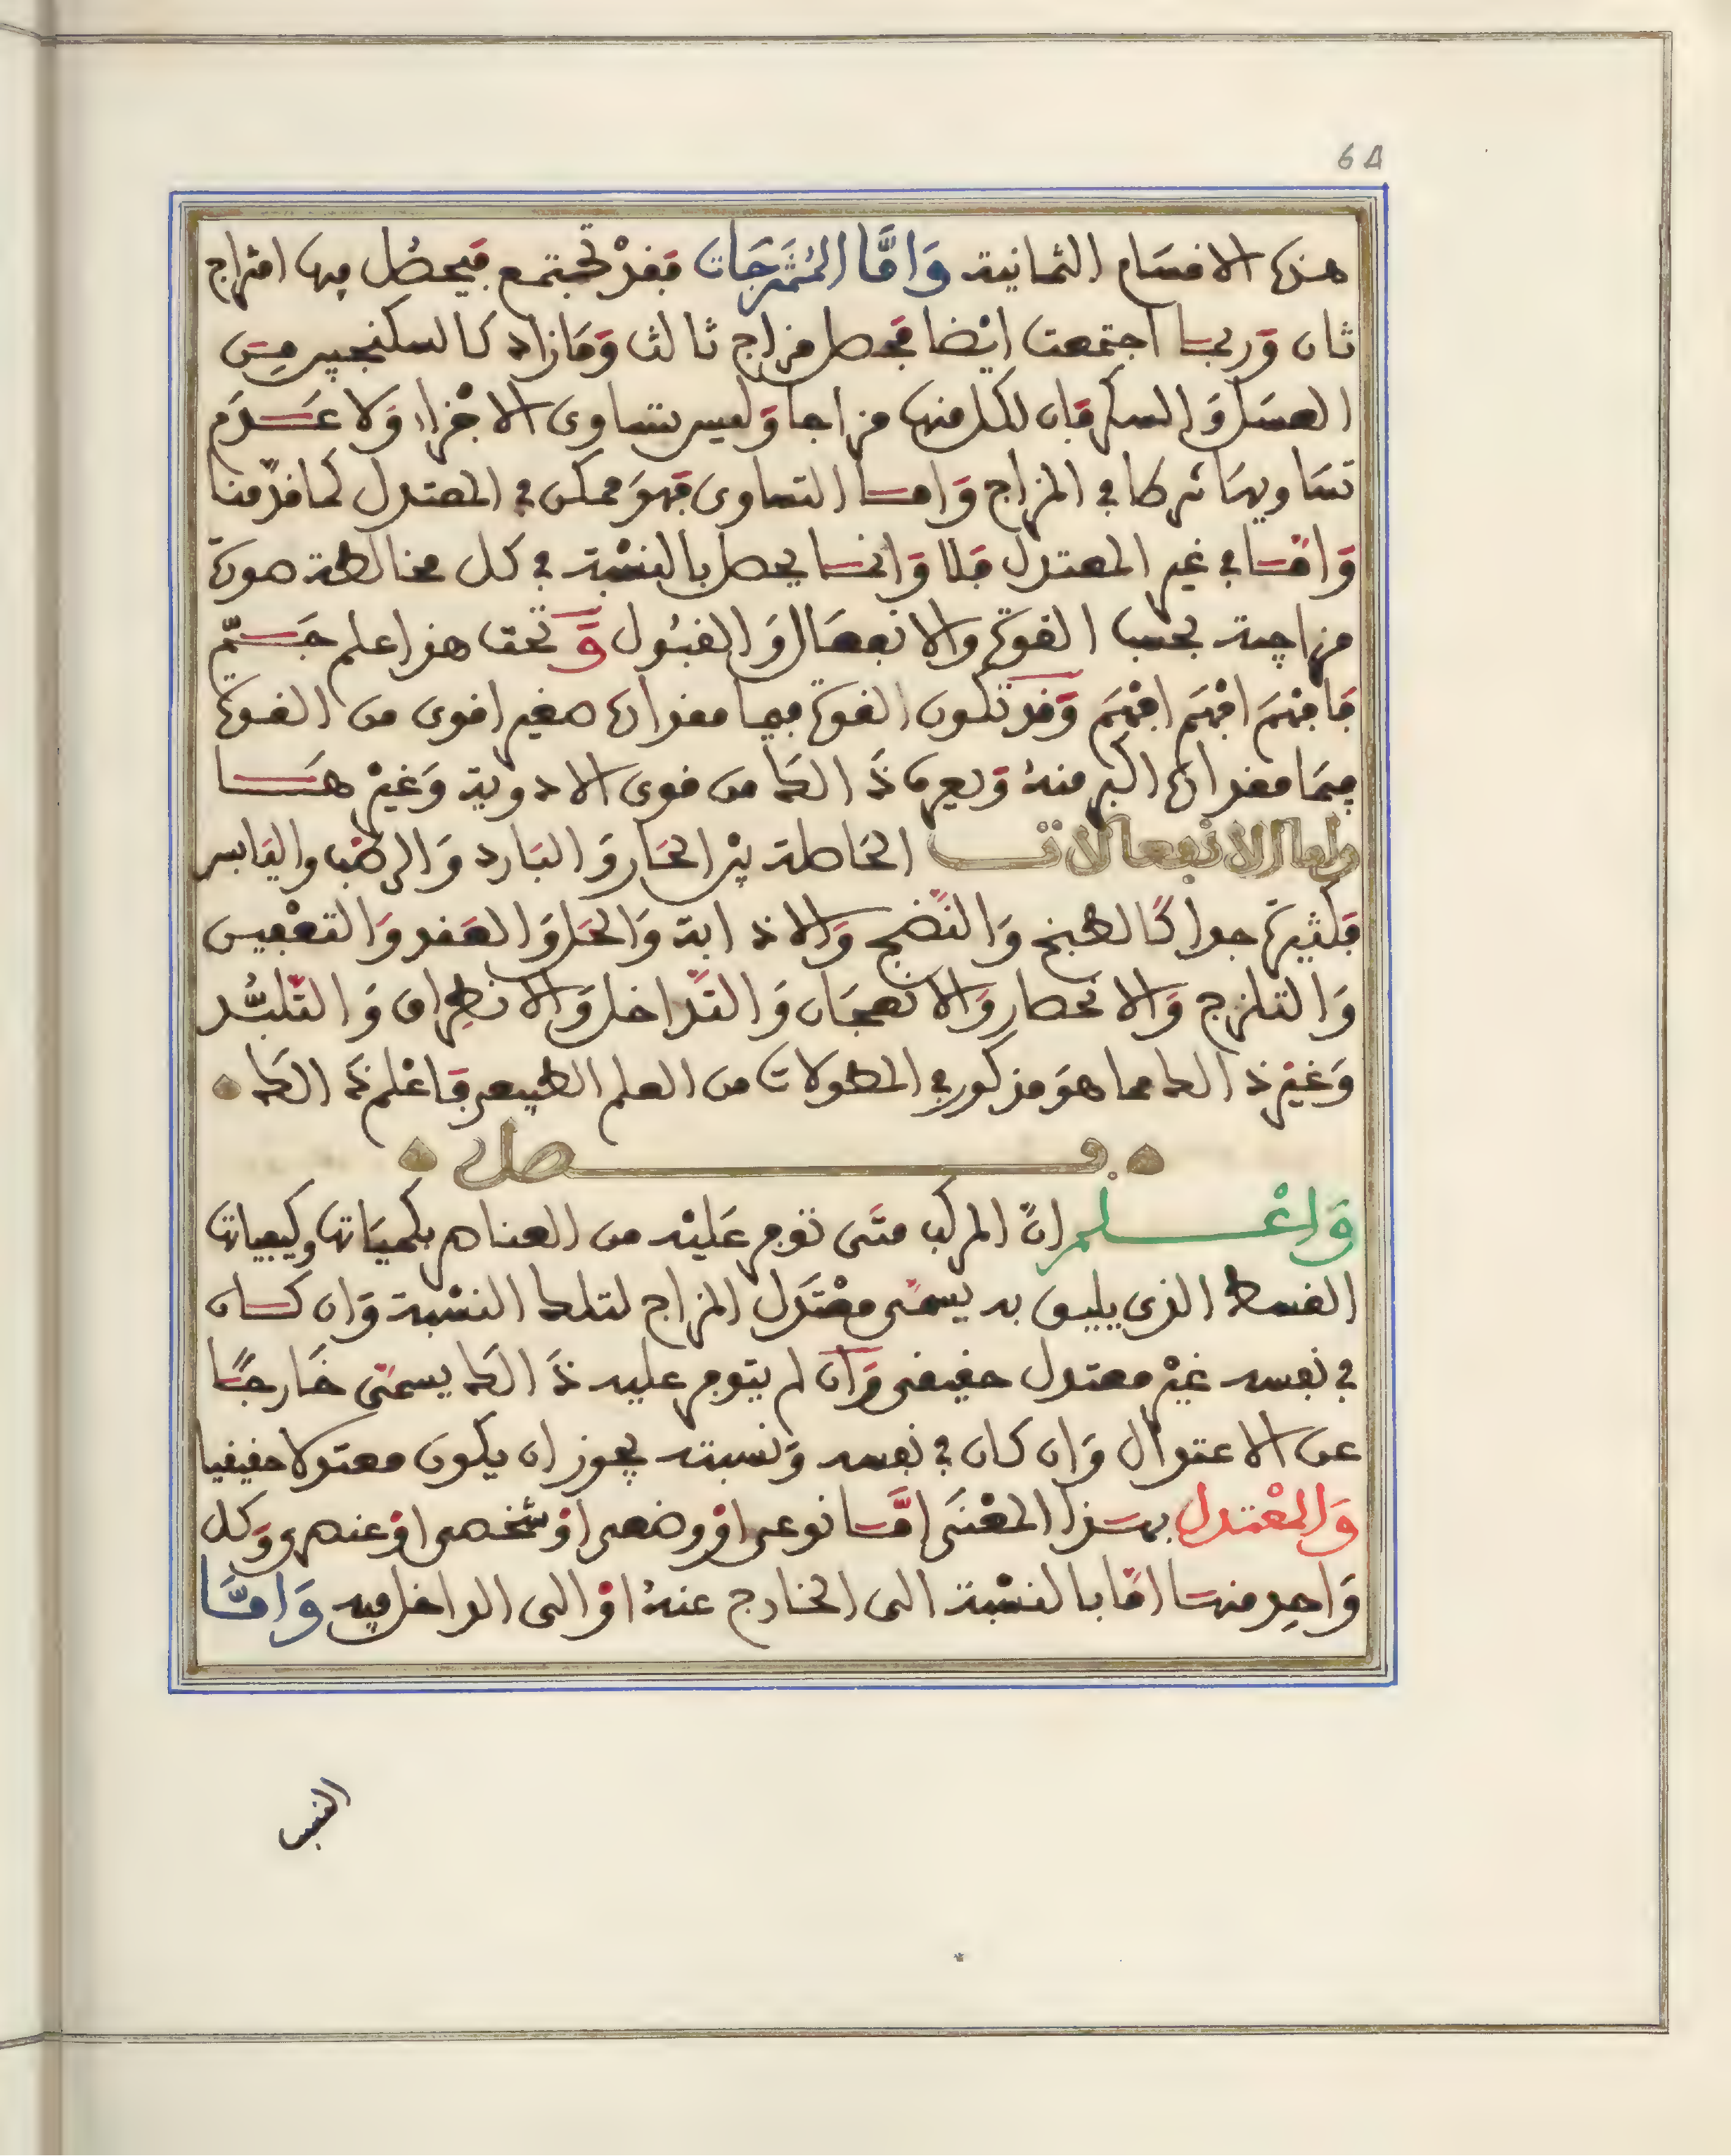 64
هذه الاقسام الثمانية وَامَّا المُمْتَزِجَات فقدْ تجتمع فيحصُل بها امتزاج
ثان وَربمـا اجتمعت ايْضا فحصل مزاج ثالث وَمَا زاد كالسكنجبين مِن
العسَل وَالسكر فإن لكل منها مزاجا وَليس تساوى الاجْزاء وَلا عَـدَم
تسَاويهَا شرطا في المزاج وَامـا التساوى فهوَ ممكن في المعتدل كما قدّمنا
وَامّـا في غير المعتدل فلا وَانمـا يحصل بالنسْبة في كل مخالطة صورة
مزاجية بحسب القوة والانفعَال وَالقبُول وَتحت هذا علم جَـمّ
فافهَم افهَم افهَم وَقد تكون القوة فيما مقداره صغير اقوى من القوة
فيمَا مقداره اكبر منهُ وَيعرف ذَالك من قوى الادوية وَغيرْ هَـا
واما الانفعالات الحَاصلة بيْن الحَار وَالبَارد وَالرطب واليَابس
فكثيرة جدا كَالطبخ وَالنّضج وَالاذابة وَالحَل وَالعَقد وَالتعْفين
وَالتلزج وَالانحصار وَالانعجَان وَالتّدَاخل وَالانطِراق وَالتّلبُّد
وَغيْر ذالك مما هوَ مذكور في المطولات من العلم الطبيعى فَاعْلم ذَالك
فـصل
وَاعْـلم انّ المركب متَى توفر عَليْه من العناصر بكميَاتها وكيفياتها
القسط الذي يليق به يسمّى معْتَدل المزاج لتلك النسْبة وَان كـان
في نفسه غيْر معتدل حقيقى وَان لم يتوفر عليه ذَالك يسمّى خَارجًـا
عن الاعتدال وَان كان في نفسه وَنسبته يجوز ان يكون معتدلا حقيقيا
وَالمعْتدل بهـذا المعْنَى امّـا نوعى اوْ وضعى اوْ شخصى اوْ عنصرى وَكل
وَاحِد منهـا امّا بالنسْبة الى الخارج عنهُ اوْ الى الداخل فيه وَامَّـا